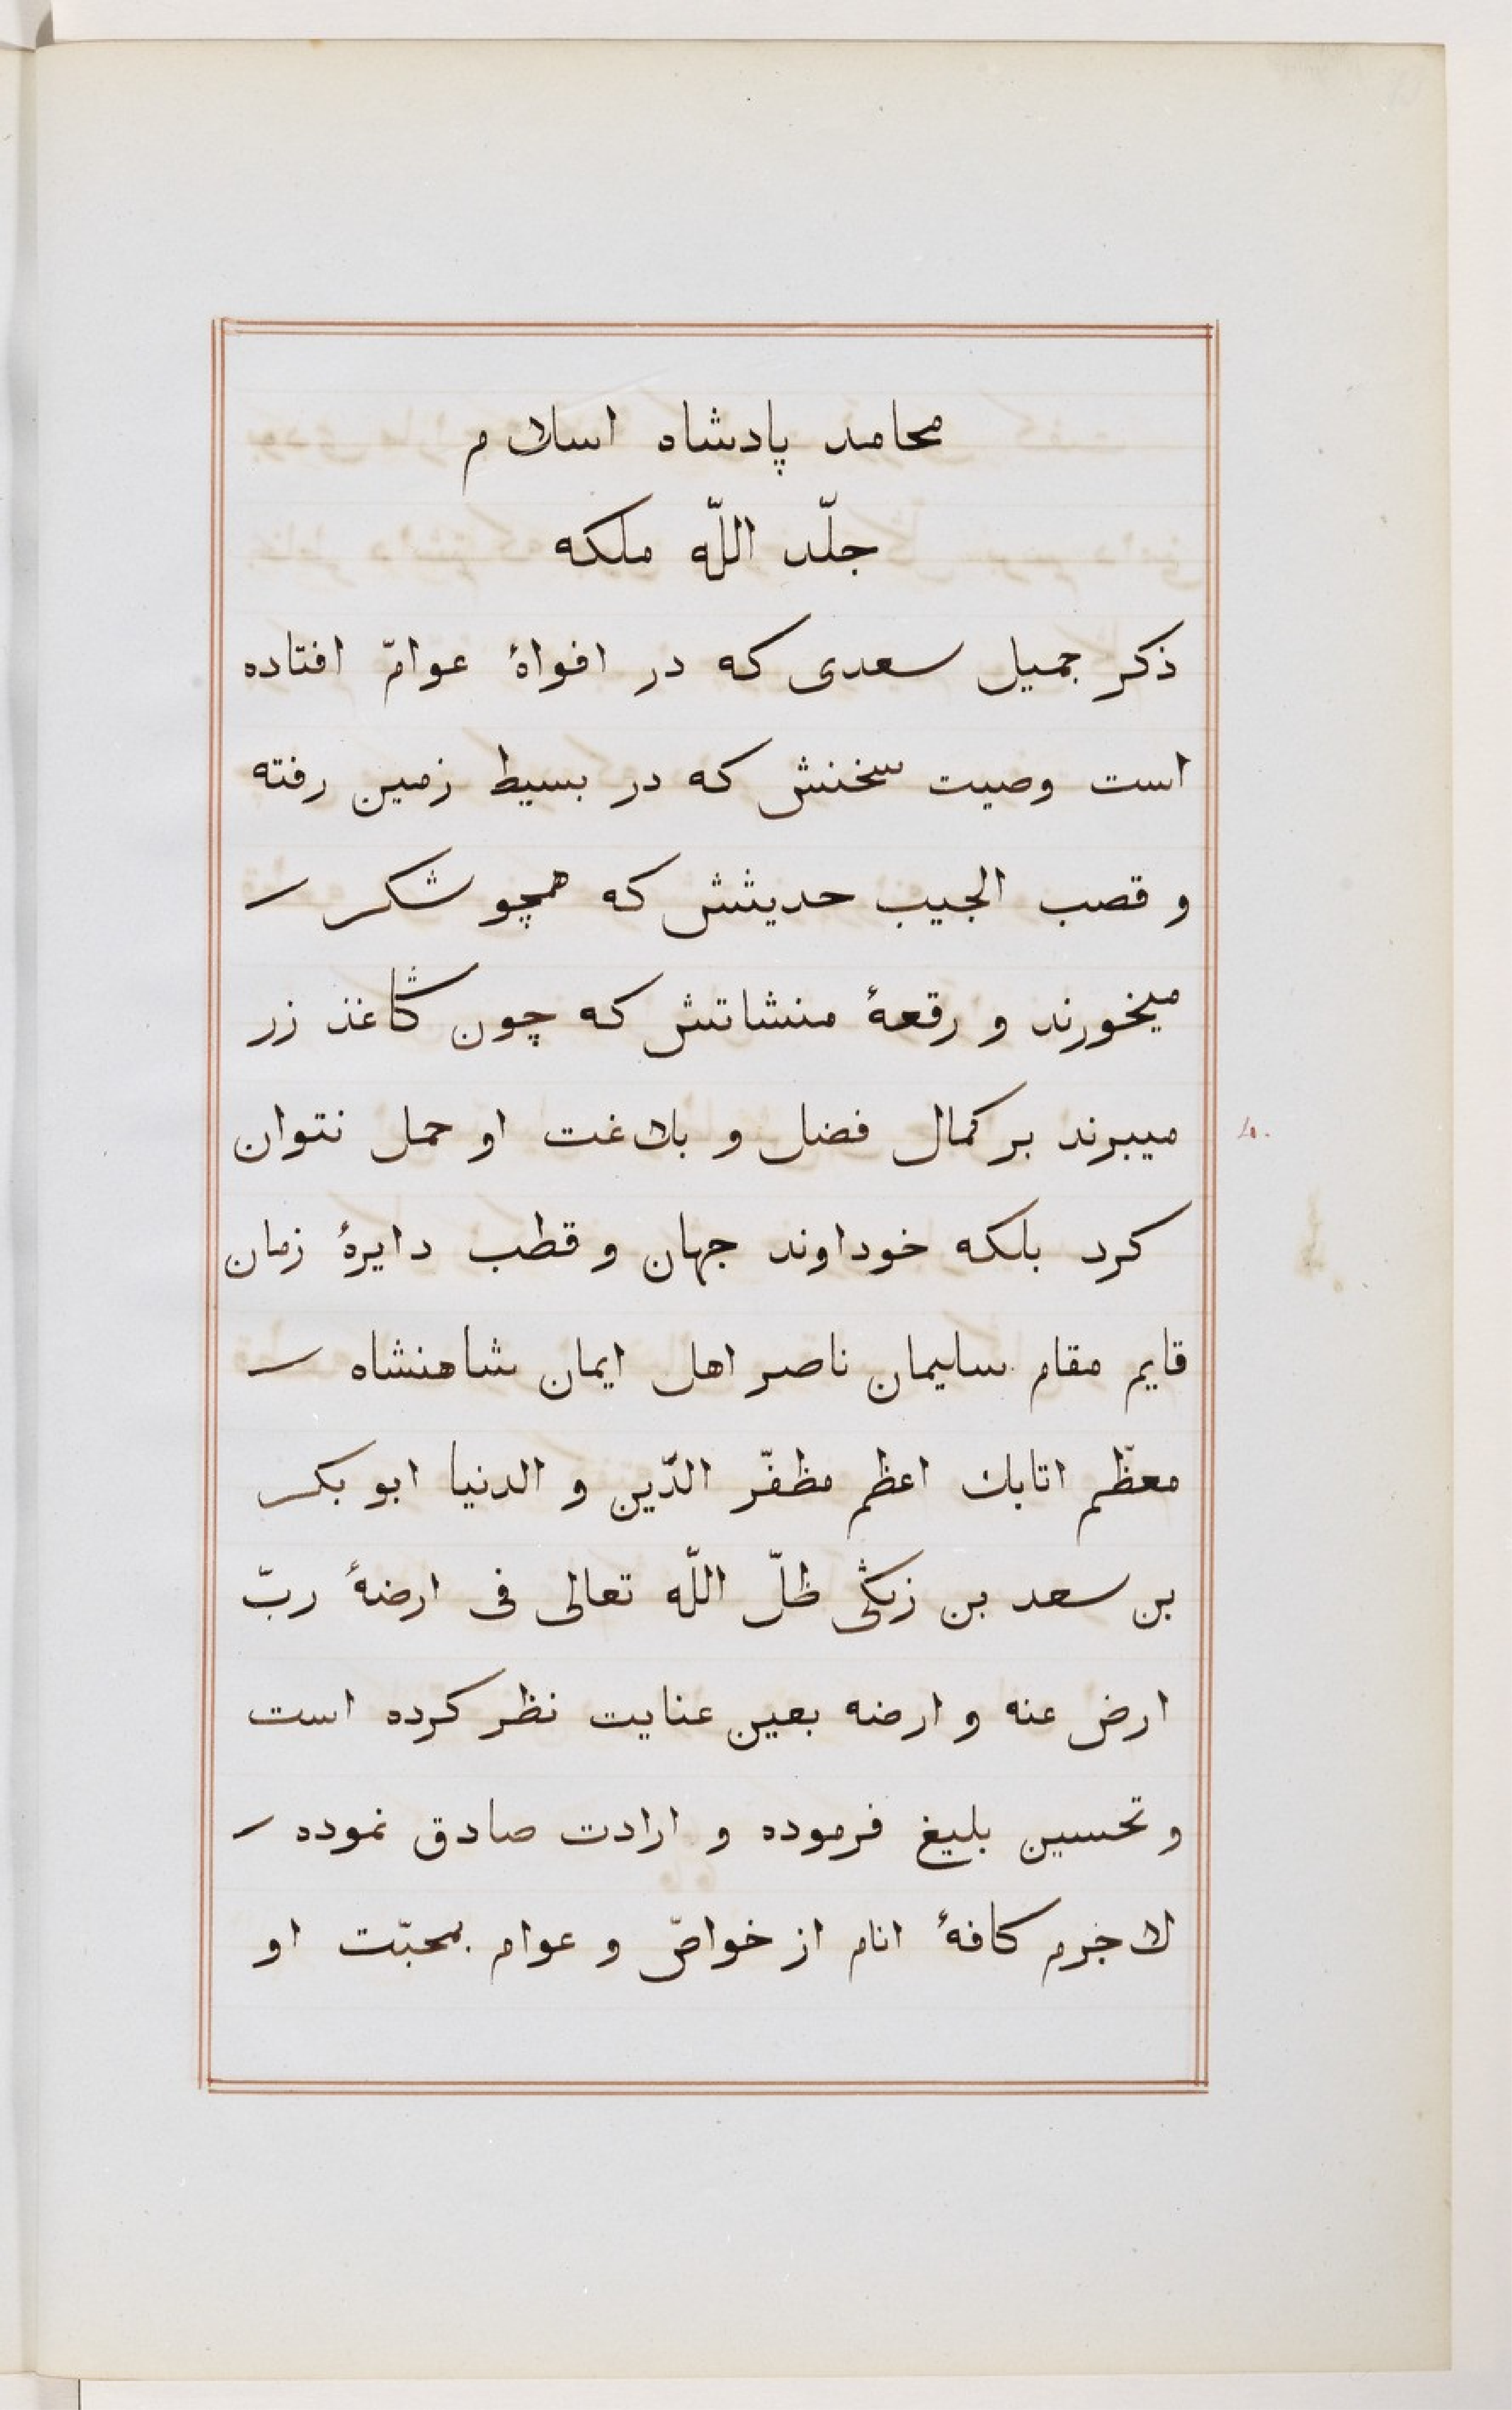 محامد پادشاه اسلام
جلّد اللّه ملكه
ذكر جميل سعدى كه در افواهٔ عوامّ افتاده
است وصيت سخنش كه در بسيط زمين رفته
و قصب الجيب حديثش كه همچو شكر
ميخورند و رقعهٔ منشاتش كه چون كاغذ زر
ميبرند بر كمال فضل و بلاغت او حمل نتوان
كرد بلكه خداوند جهان و قطب دايرهٔ زمان
قايم مقام سليمان ناصر اهل ايمان شاهنشاه
معظّم اتابك اعظم مظفّر الدّين و الدنيا ابو بكر
بن سعد بن زنگى ظلّ اللّه تعالى فى ارضهٔ ربّ
ارض عنه و ارضه بعين عنايت نظر كرده است
و تحسين بليغ فرموده و ارادت صادق نموده
لاخرم كافهٔ انام از خواصّ و عوام بمحبّت او